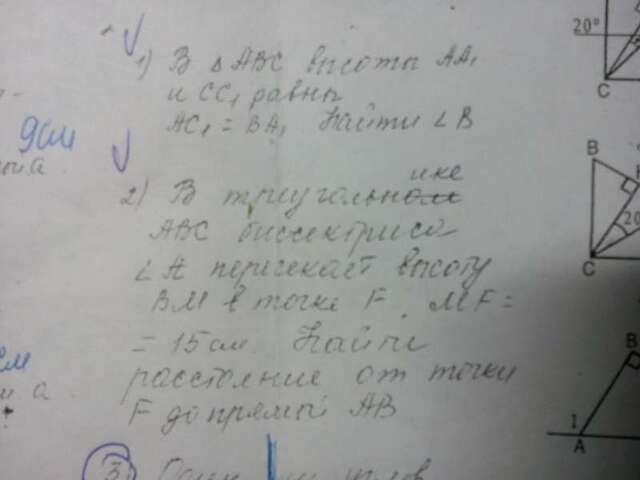 1) В △ ABC высоты AA₁
и CC₁ равны
AC₁ = BA₁ Найти ∠ B
9см
2) В треугольнике
ABC биссектриса
∠ A пересекает высоту
BM в точке F. MF =
= 15 см. Найти
расстояние от точки
F до прямой AB
3
углов
20°
C
B
20
C
B
1
A